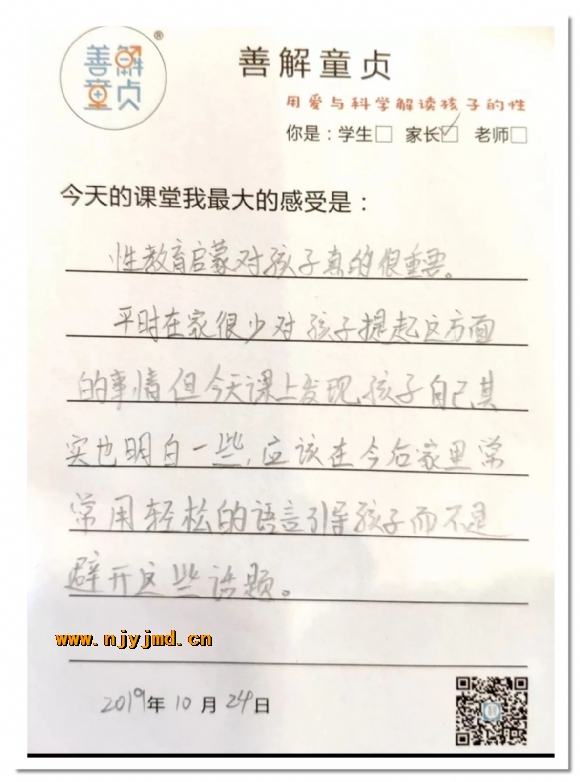 善解童贞
®
善解童贞
用爱与科学解读孩子的性
你是：学生□ 家长☑ 老师□
今天的课堂我最大的感受是：
性教育启蒙对孩子真的很重要。
平时在家很少对孩子提起这方面
的事情但今天课上发现,孩子自己其
实也明白一些,应该在今后家里常
常用轻松的语言引导孩子而不是
辟开这些话题。
www.njyjmd.cn
2019年10月24日